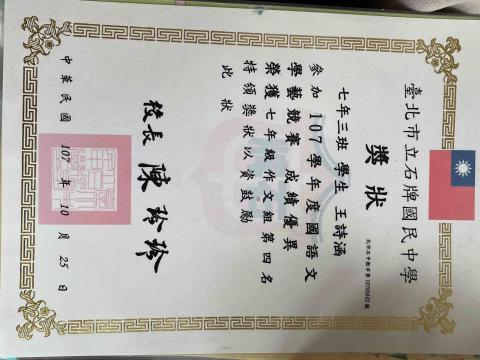 臺北市立石牌國民中學
獎狀
北市石中教獎字第10706642號
七年三班 學生 王詩涵
參加107學年度國語文
學藝競賽 成績優異
榮獲七年級作文組第四名
特頒獎狀以資鼓勵
此狀
校長 陳玲玲
中華民國 107 年 10 月 25 日